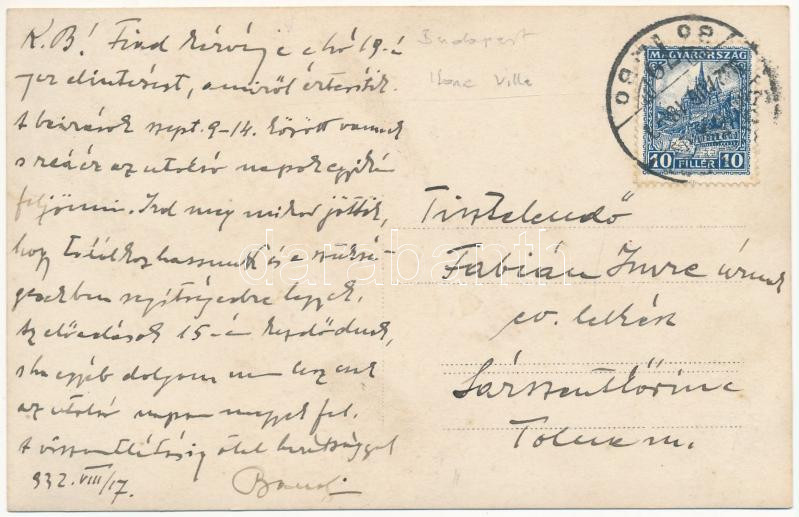 K. B! Find kérvénye e hó 19-én
nyer elintézést, amiről értesítik.
A beírások szept. 9-14. között vannak
s ráér az utolsó napok egyikén
feljönni. Írd meg mikor jöttök,
hogy találkozhassunk és a szüksé-
gesekben segítségedre legyek.
Az előadások 15-én kezdődnek,
s ha egyéb dolgom nem lesz csak
az utolsó napon megyek fel.
A viszontlátásig ölel barátsággal
932. VIII/17.
Budapest
Ilona Villa
MAGYARORSZÁG
10 FILLÉR 10
Tisztelendő
Fabián Imre úrnak
ev. lelkész
Sárszentlőrinc
Tolna m.
darabanth